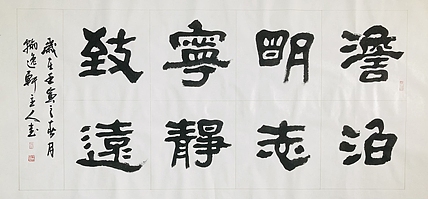 澹泊
明志
寧靜
致遠
歲在壬寅之春月
揄逸軒主人書